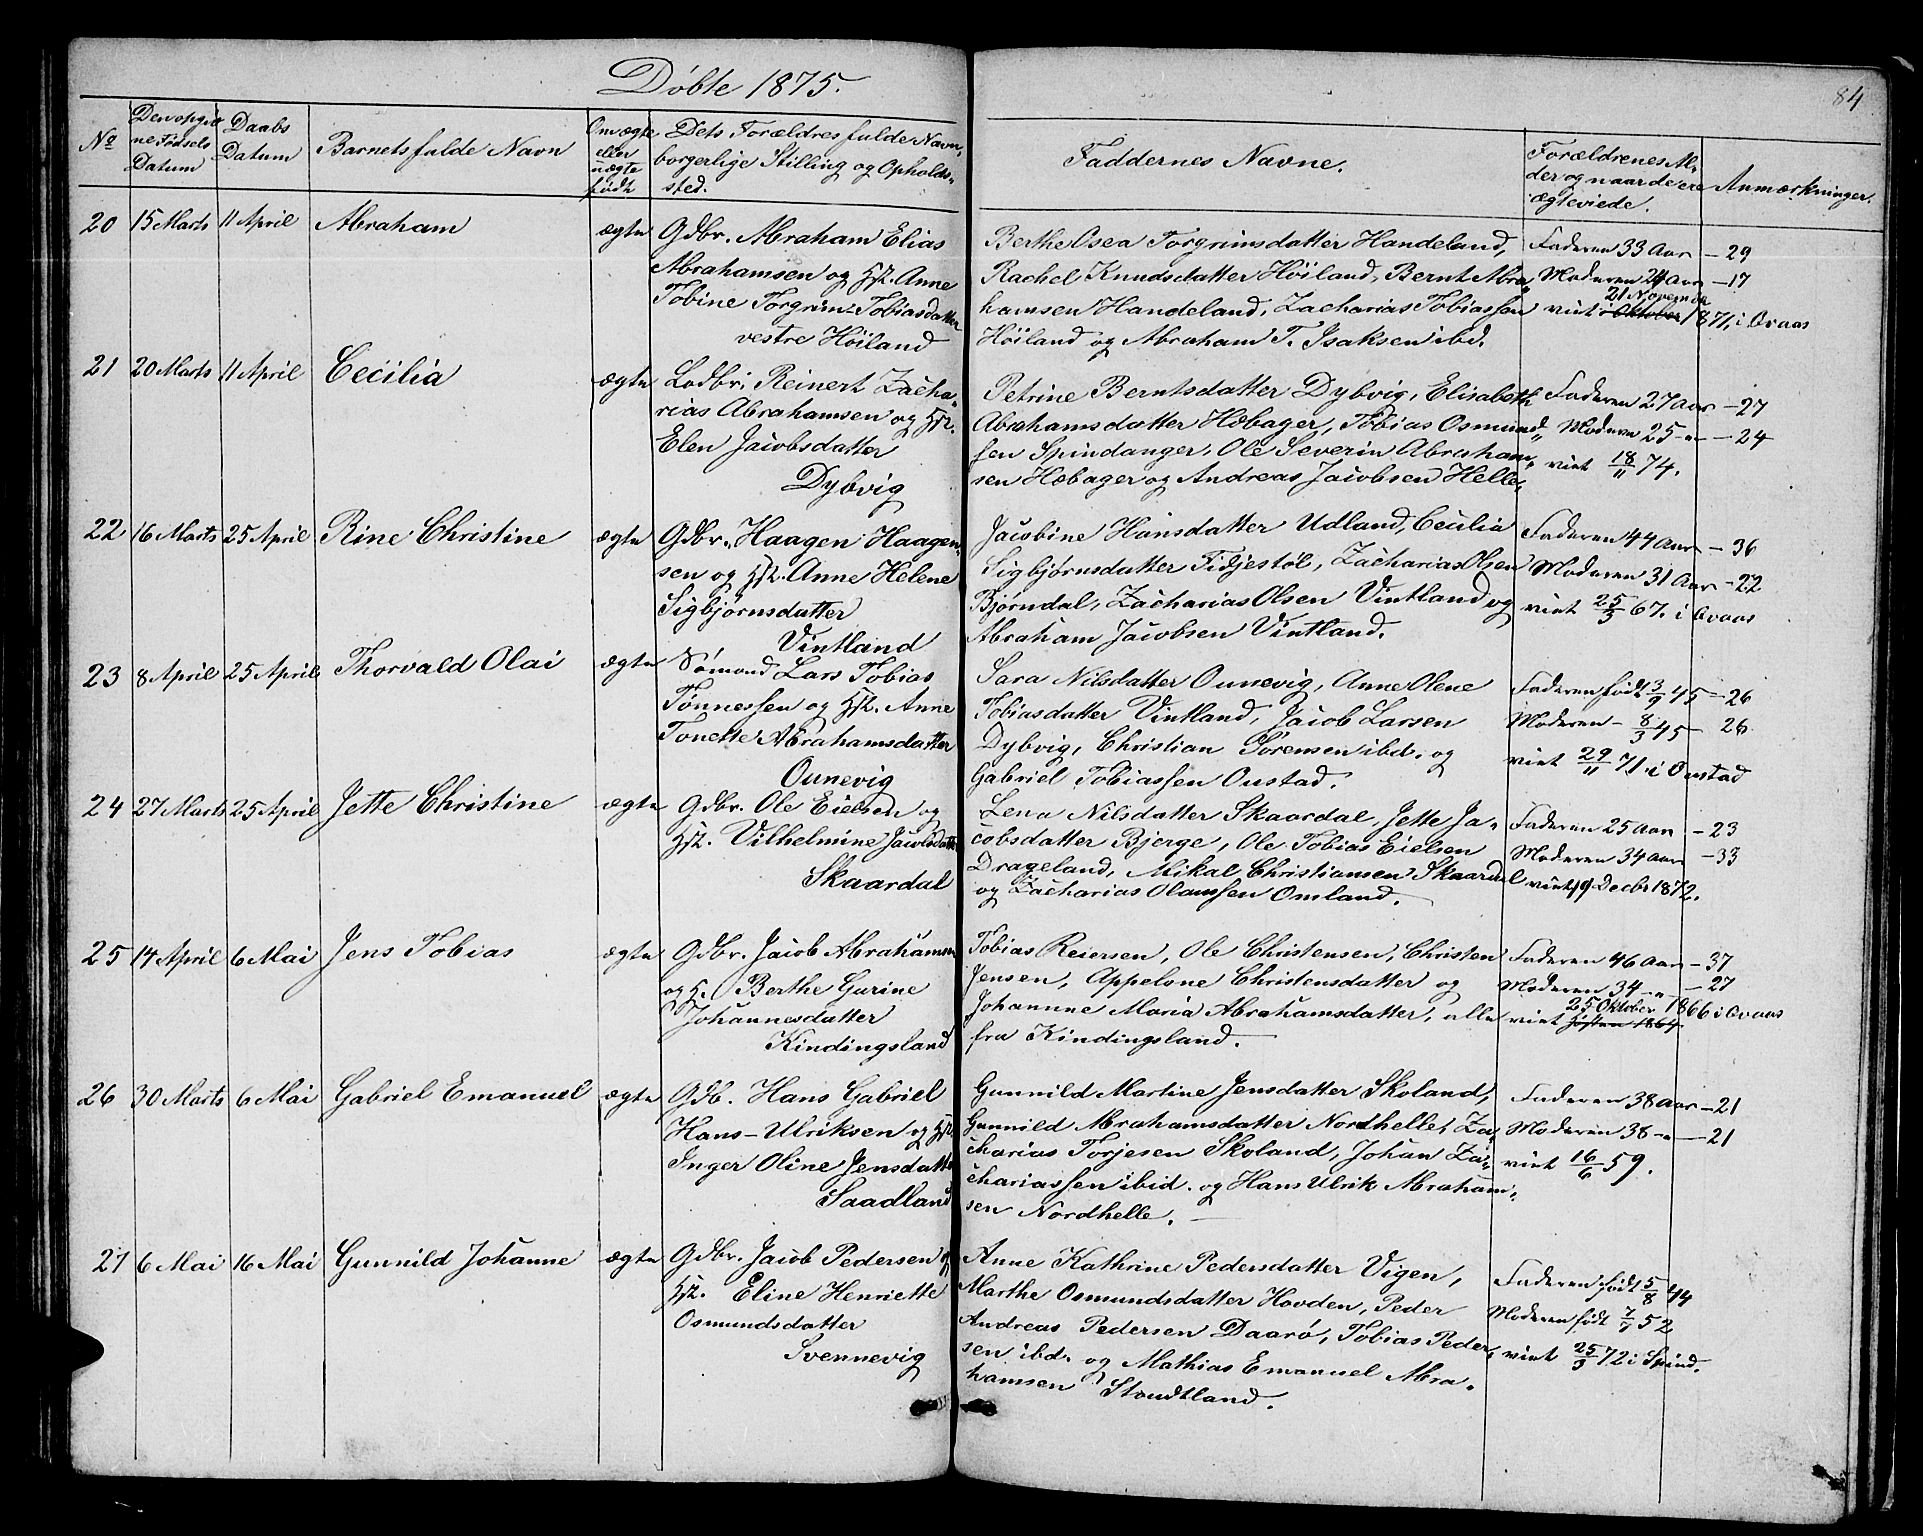 Døbte 1875.
84
No
Den opgiv
ne Fødsels
Datum
Daabs
Datum
Barnets fulde Navn
Om ægte
eller
uægte
født
Dets Forældres fulde Navn,
borgerlige Stilling og Opholds-
sted.
Faddernes Navne.
Forældrenes Al-
der og naar de ere
ægteviede.
Anmærkninger.
20 15 Marts 11 April Abraham ægte
Gdbr. Abraham Elias
Abrahamsen og Hst. Anne
Tobine Torgrim-Tobiasdatter
vestre Høiland
Berthe Osea Torgrimsdatter Handeland,
Rachel Knudsdatter Høiland, Bernt Abra-
hamsen Handeland, Zacharias Tobiassen
Høiland og Abraham T. Isaksen ibd.
Faderen 33 Aar - 29
Moderen 24 Aar - 17
21 Novemb
viet i Oktober 1871, i Qvaas
21 20 Marts 11 April Cecilia ægte
Lodbr. Reinert Zacha-
rias Abrahamsen og Hst.
Elen Jacobsdatter
Dybvig
Petrine Berntsdatter Dybvig, Elisabeth
Abrahamsdatter Hæbager, Tobias Osmund-
sen Spindanger, Ole Severin Abraham-
sen Hæbager og Andreas Jacobsen Helle.
Faderen 27 Aar - 27
Moderen 25 - " - 24
viet 18/11 74.
22 16 Marts 25 April Rine Christine ægte
Gdbr. Haagen Haagen-
sen og Hst. Anne Helene
Sigbjørnsdatter
Vintland
Jacobine Hansdatter Udland, Cecilia
Sigbjørnsdatter Fidjestøl, Zacharias Olsen
Bjørndal, Zacharias Olsen Vintland og
Abraham Jacobsen Vintland.
Faderen 44 Aar - 36
Moderen 31 Aar - 22
viet 25/3 67. i Qvaas
23 8 April 25 April Thorvald Olai ægte
Sømand Lars Tobias
Tønnessen og Hst. Anne
Tonette Abrahamsdatter
Ounevig
Sara Nilsdatter Ounevig, Anne Olene
Tobiasdatter Vintland, Jacob Larsen
Dybvig, Christian Sørensen ibd. og
Gabriel Tobiassen Oustad.
Faderen født 3/9 45 - 26
Moderen - 8/3 45 - 26
viet 29/11 71. i Oustad
24 27 Marts 25 April Jette Christine ægte
Gdbr. Ole Eielsen og
Hst. Vilhelmine Jacobsdatt
Skaardal
Lena Nilsdatter Skaardal, Jette Ja-
cobsdatter Bjerge, Ole Tobias Eielsen
Drageland, Mikal Christiansen Skaardal
og Zacharias Olaussen Omland.
Faderen 25 Aar - 23
Moderen 34 Aar - 33
viet 19 Decbr 1872.
25 14 April 6 Mai Jens Tobias ægte
Gdbr. Jacob Abrahamsen
og H. Berthe Gurine
Johannesdatter
Kindingsland
Tobias Reiersen, Ole Christensen, Christen
Jensen, Appelone Christensdatter og
Johannne Maria Abrahamsdatter, alle
fra Kindingsland.
Faderen 46 Aar - 37
Moderen 34 - " - 27
25 Oktober 1866 i Qvaas
viet Høsten 1864
26 30 Marts 6 Mai Gabriel Emanuel ægte
Gdb. Hans Gabriel
Hans-Ulriksen og Hst.
Inger Oline Jensdatt
Saadland
Gunnild Martine Jensdatter Skoland,
Gunnild Abrahamsdatter Nordhelle, Za-
charias Torjesen Skoland, Johan Za-
chariassen ibid. og Hans Ulrik Abraham-
sen Nordhelle.
Faderen 38 Aar - 21
Moderen 38 - " - 21
viet 16/6 59.
27 6 Mai 16 Mai Gunnild Johanne ægte
Gdbr. Jacob Pedersen og
Hst. Eline Henriette
Osmundsdatter
Svennevig
Anne Kathrine Pedersdatter Vigen,
Marthe Osmundsdatter Hovden, Peder
Andreas Pedersen Daarø, Tobias Peder-
sen ibd. og Mathias Emanuel Abra-
hamsen Stoudtland.
Faderen født 5/8 44
Moderen født 52
viet 25/3 72 i Spind.